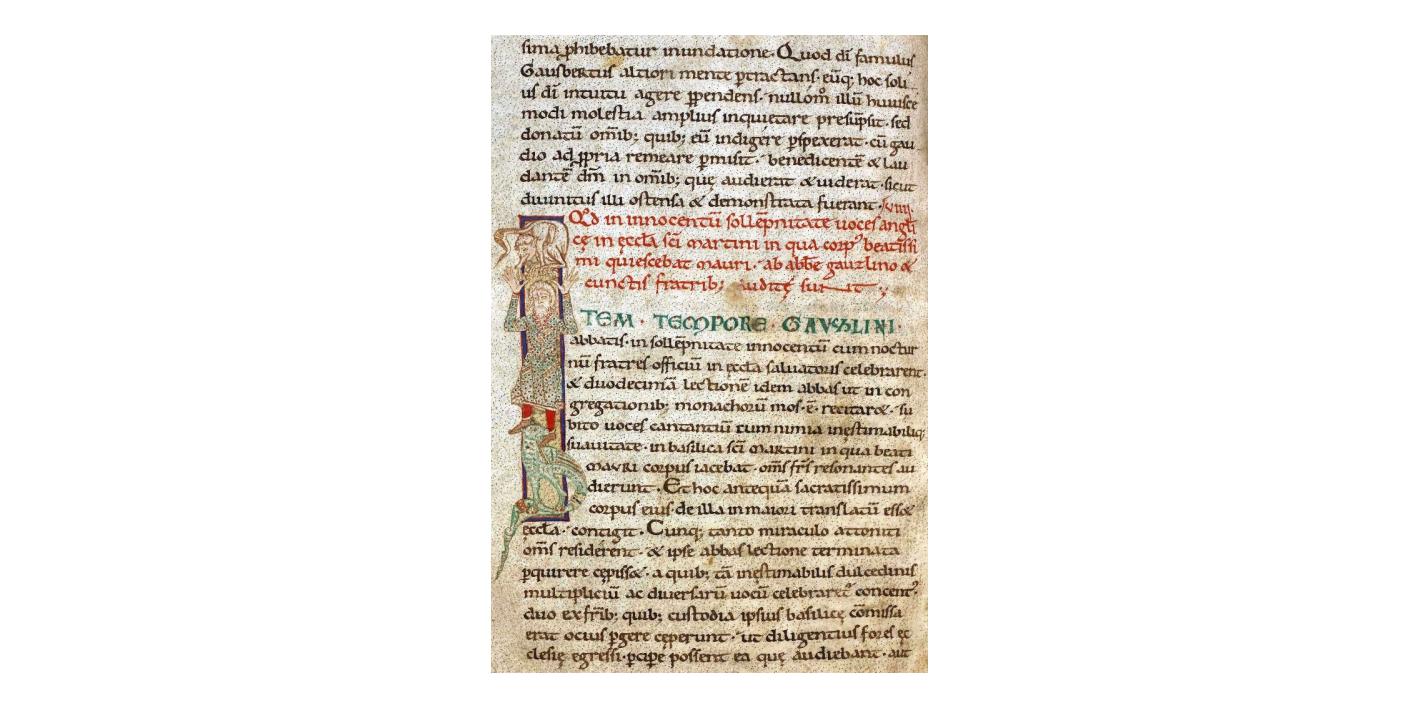 sima phibebatur inundatione. Quod dī famulus
Gausbertus altiori mente ptractans. eūq; hoc soli
us dī intuitu agere ppendens. nullom̊ illū huiusce
modi molestia amplius inquietare presūpsit. sed
donatū om̄ib; quib; eū indigere pspexerat. cū gau
dio ad ppria remeare pmisit. benedicentē & lau
dantē dm̄ in om̄ib; quę audierat & uiderat. sicut
diuinitus illi ostensa & demonstrata fuerant.
Qd in innocentū sollēpnitate uoces angli
cę in ęccła sc̄i martini in qua corp᾽ beatissi
mi quiescebat mauri. ab abbe gauzlino &
cunctis fratrib; auditę sunt
ITEM TEMPORE GAUZLINI.
abbatis. in sollēpnitate innocentū cum noctur
nū fratres officiū in ęccła saluatoris celebrarent.
& duodecimā lectionē idem abbas ut in con
gregationib; monachorū mos. ē. recitar&. su
bito uoces cantantiū cum nimia inęstimabiliq;
suauitate. in basilica sc̄i martini in qua beati
mauri corpus iacebat. om̄s fr̄s resonantes au
dierunt. Et hoc antequā sacratissimum
corpus eius. de illa in maiori translatū ess&
ęccła. contigit. Cunq; tanto miraculo attoniti
om̄s residerent. & ipse abbas lectione terminata
pquirere cępiss&. a quib; tā inęstimabilis dulcedinis
multipliciū ac diuersarū uocū celebraret᾽ concent᾽.
duo ex fr̄ib; quib; custodia ipsius basilicę cōmissa
erat ocius pgere cęperunt. ut diligentius fores ęc
clesię egressi. pcipe possent ea quę audiebant. aut